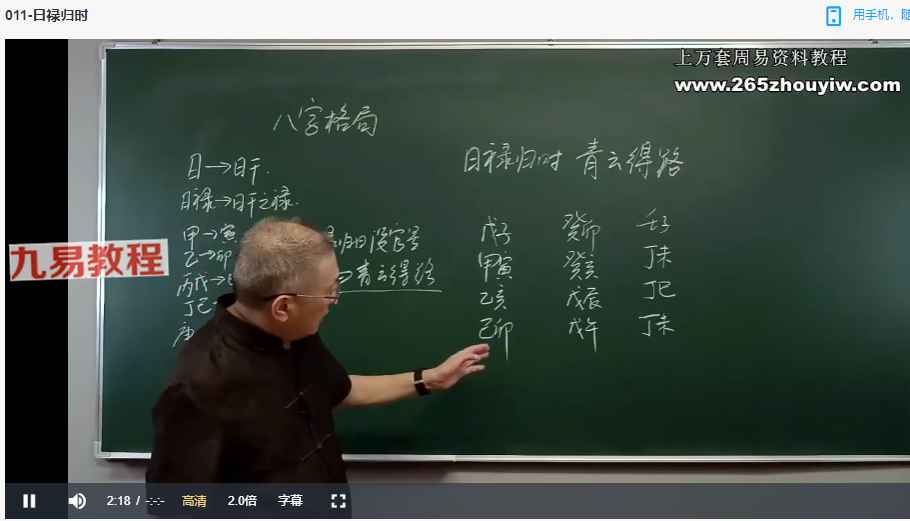 011-日禄归时
用手机，随
上万套周易资料教程
www.265zhouyiw.com
八字格局
日→日干.
日禄→日干之禄.
甲→寅
乙→卯
丙戊→
丁己→
庚
归日没官号
青云得路
日禄归时 青云得路
戊子 癸卯 壬子
甲寅 癸亥 丁未
乙亥 戊辰 丁巳
己卯 戊午 丁未
九易教程
2:18 / -:-:-
高清
2.0倍
字幕